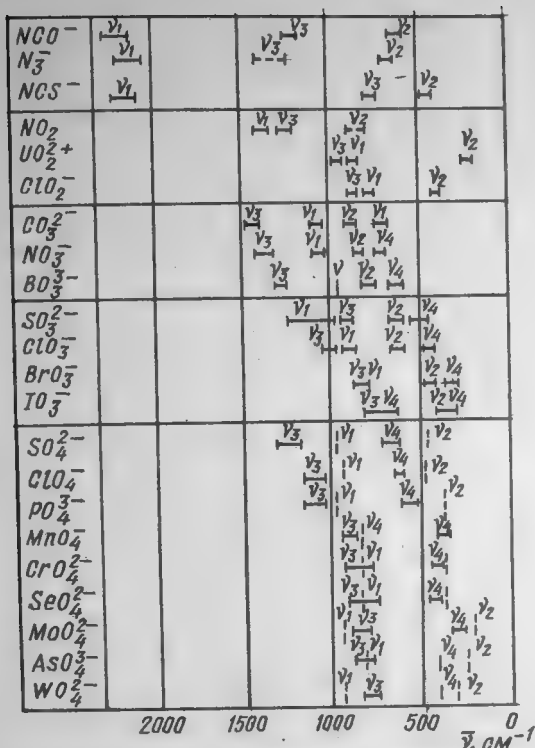 NCO⁻ ν₁ ν₃ ν₂
N₃⁻ ν₁ ν₃ ν₂
NCS⁻ ν₁ ν₃ ν₂
NO₂ ν₁ ν₃ ν₂
UO₂²⁺ ν₃ ν₁ ν₂
ClO₂⁻ ν₃ ν₁ ν₂
CO₃²⁻ ν₃ ν₁ ν₂ ν₁
NO₃⁻ ν₃ ν₁ ν₂ ν₄
BO₃³⁻ ν₃ ν ν₂ ν₄
SO₃²⁻ ν₁ ν₃ ν₂ ν₄
ClO₃⁻ ν₃ ν₁ ν₂ ν₄
BrO₃⁻ ν₃ ν₁ ν₂ ν₄
IO₃⁻ ν₃ ν₄ ν₂ ν₄
SO₄²⁻ ν₃ ν₁ ν₄ ν₂
ClO₄⁻ ν₃ ν₁ ν₄ ν₂
PO₄³⁻ ν₃ ν₁ ν₄ ν₂
MnO₄⁻ ν₃ ν₄ ν₄
CrO₄²⁻ ν₃ ν₁ ν₄
SeO₄²⁻ ν₃ ν₁ ν₄
MoO₄²⁻ ν₁ ν₃ ν₄ ν₂
AsO₄³⁻ ν₃ ν₁ ν₄ ν₂
WO₄²⁻ ν₁ ν₃ ν₄ ν₂
2000 1500 1000 500 0
ν̄, СМ⁻¹